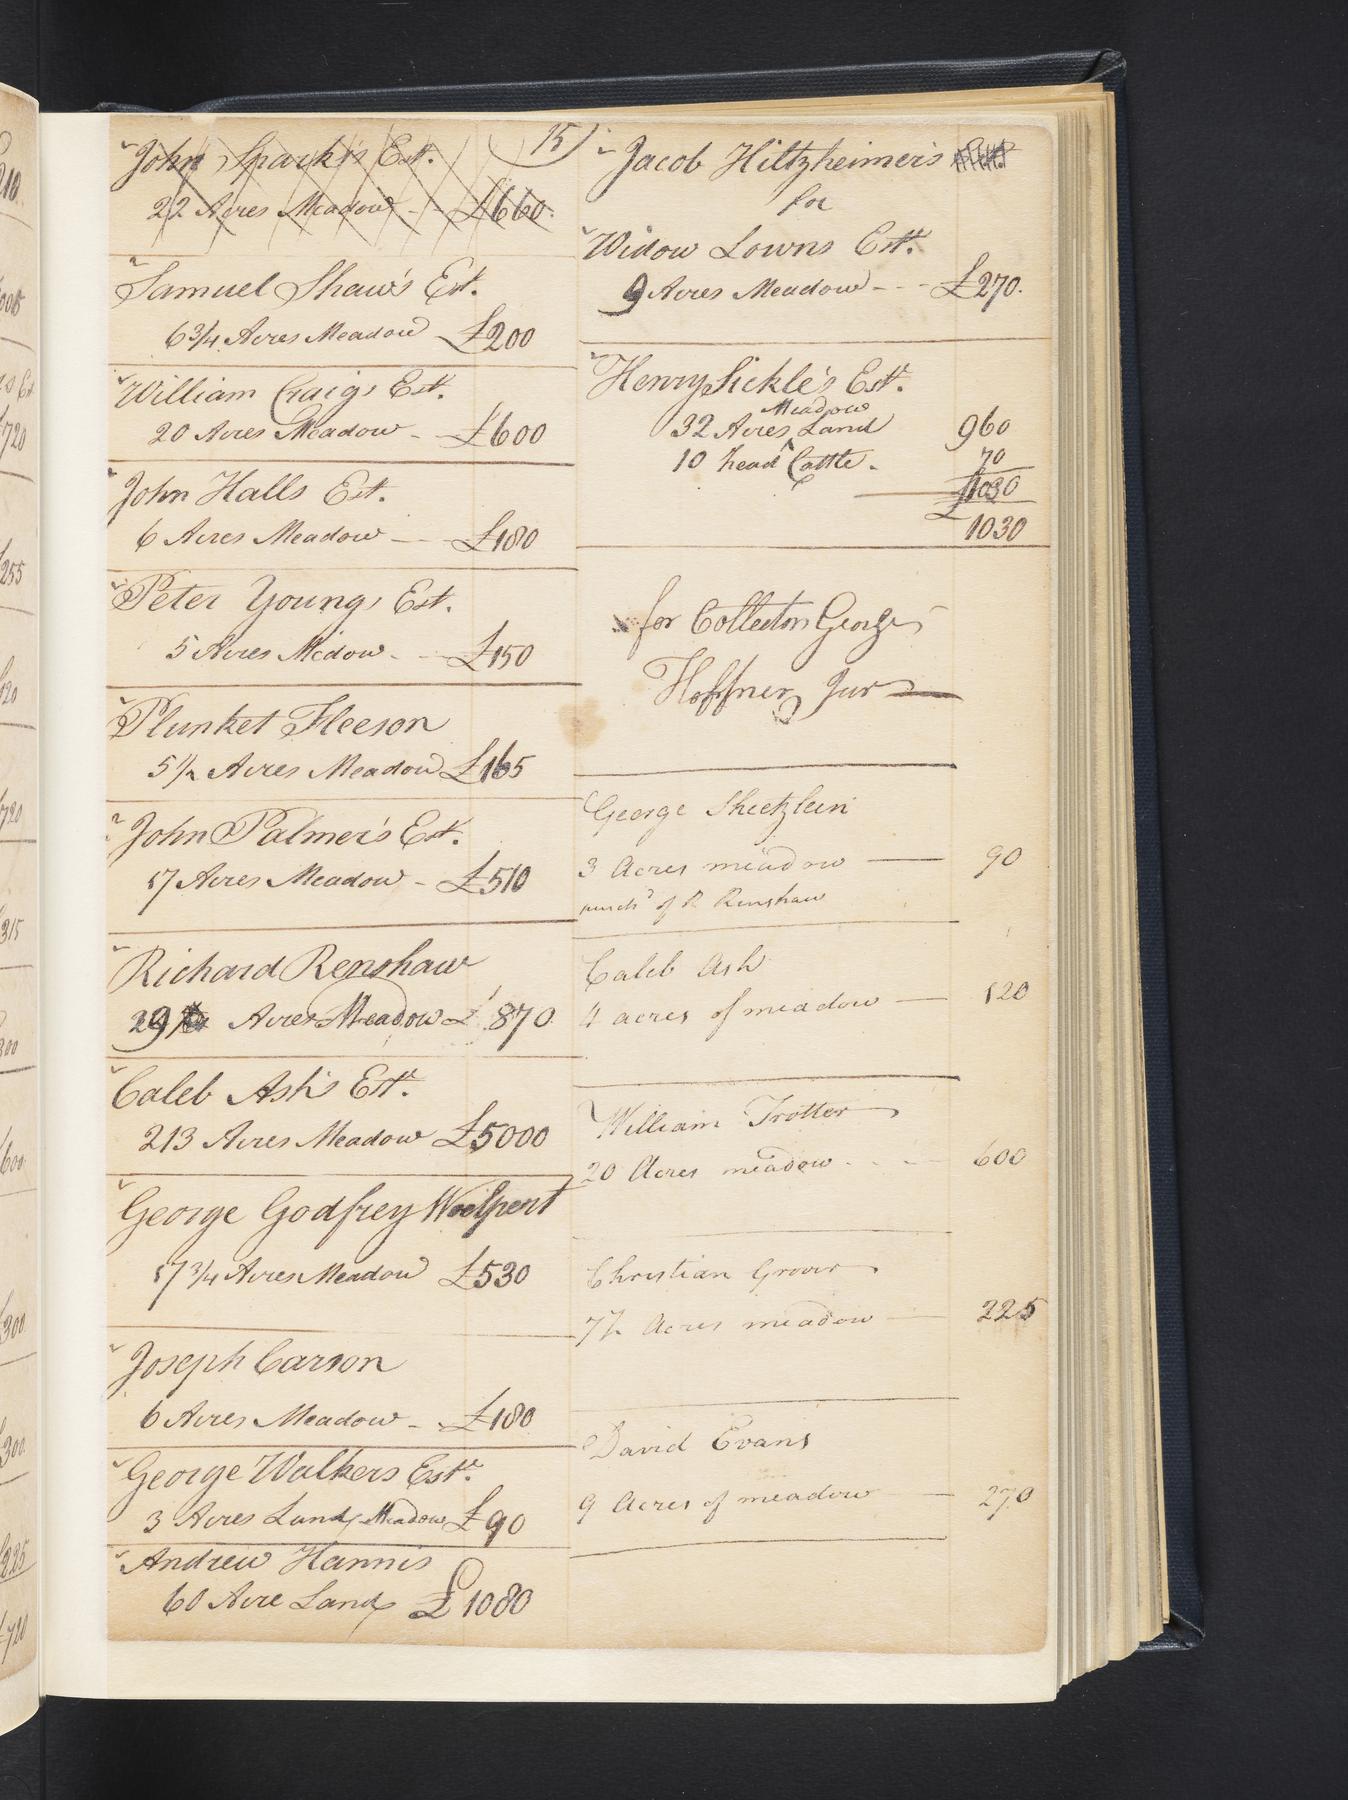 15
John Spark's Est.
22 Acres Meadow - - £660.
Samuel Shaw's Est.
6 3/4 Acres Meadow £200
William Craigs Est.
20 Acres Meadow - - £600
John Halls Est.
6 Acres Meadow - - £180
Peter Youngs Est.
5 Acres Medow - - £150
Plunket Fleeson
5 1/2 Acres Meadow £165
John Palmer's Est.
17 Acres Meadow - £510
Richard Renshaw
29 Acres Meadow £ 870
Caleb Ash's Este.
213 Acres Meadow £5000
George Godfrey Woelpert
17 3/4 Acres Meadow £530
Joseph Carson
6 Acres Meadow - £180
George Walkers Este.
3 Acres Land Meadow £90
Andrew Hannis
60 Acre Land £1080
Jacob Hiltzheimer's
for
Widow Lowns Este.
9 Acres Meadow - - - £270.
Henry Sickle's Este.
Meadow
32 Acres Land 960
10 head Cattle. 70
£1030
£1030
for Collector George
Hoffner Junr
George Sheetzlein
3 Acres meadow — 90
purchd of R Renshaw
Caleb Ash
4 acres of meadow — 120
William Trotter
20 Acres meadow - - - 600
Christian Grover
7 1/2 Acres meadow — 225
David Evans
9 Acres of meadow — 270
218
£720
£255
120
720
315
300
600
£300
300
225
£720